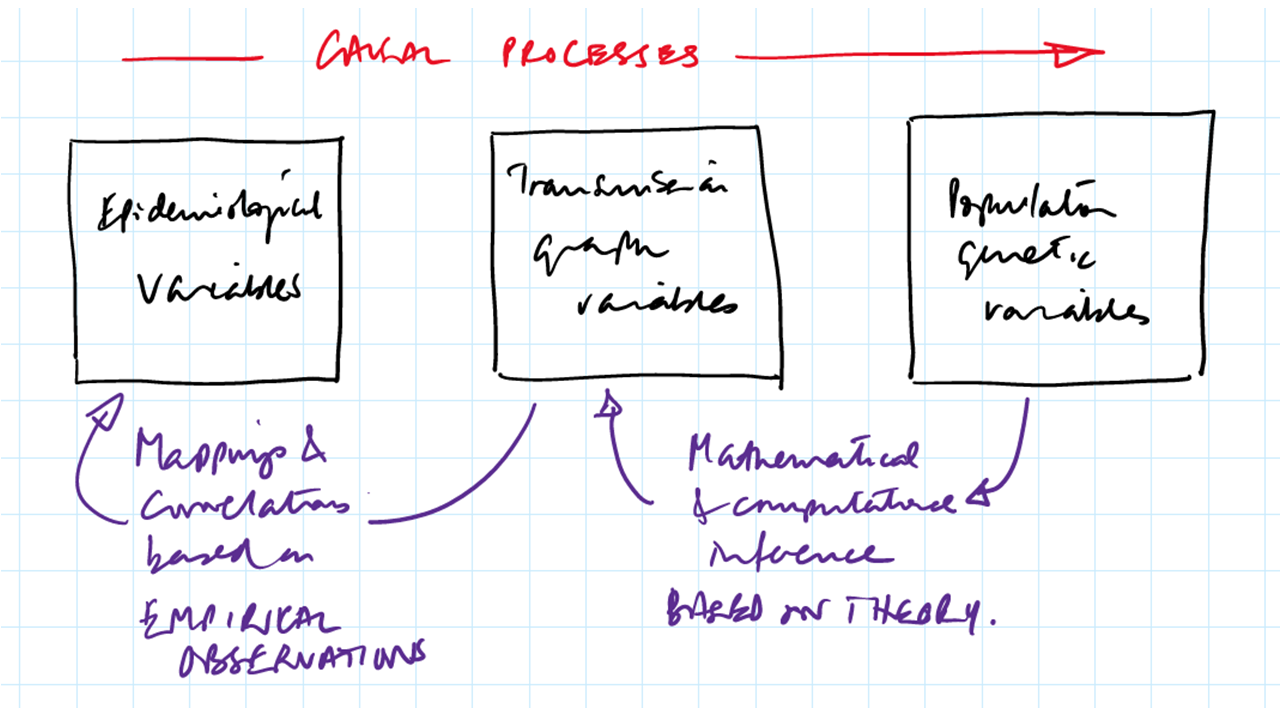 CAUSAL PROCESSES
Epidemiological
Variables
Transmission
graph
variables
Population
genetic
variables
Mappings &
Correlations
based on
EMPIRICAL
OBSERVATIONS
Mathematical
& computational
inference
BASED ON THEORY.